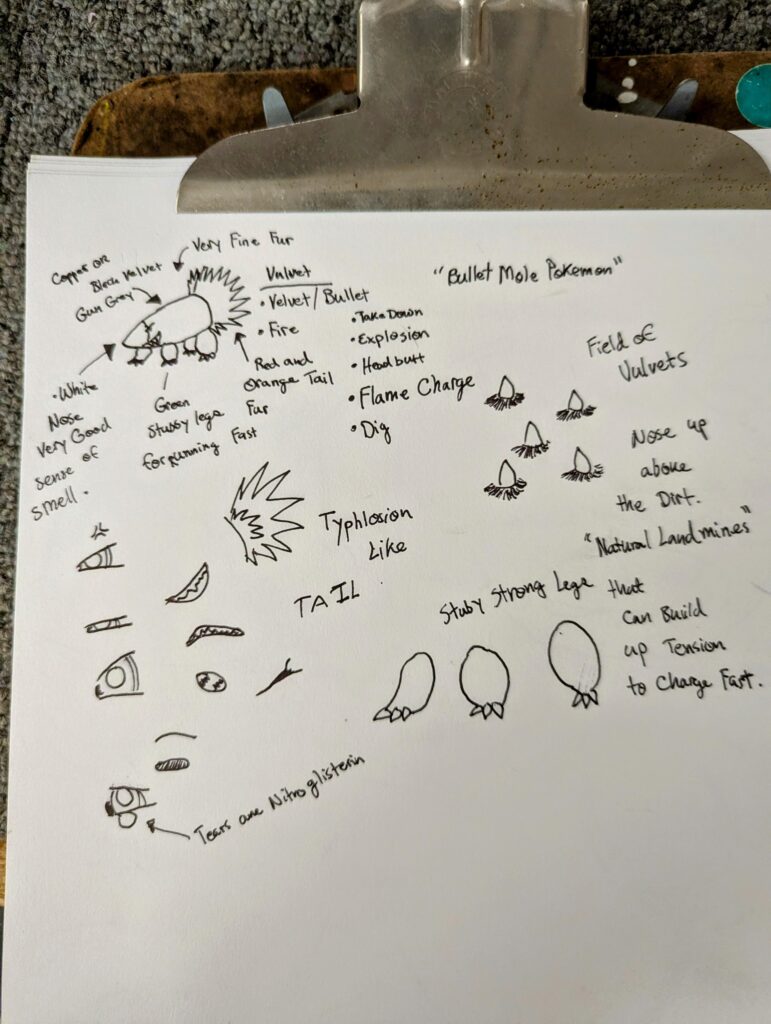 Very Fine Fur
Copper or
Black Velvet
Gun Grey
Vulvet
• Velvet/Bullet
• Fire
Red and
Orange Tail
Fur
• White
Nose
Very Good
sense of
smell.
Green
Stubby legs
for running Fast
• Take Down
• Explosion
• Headbutt
• Flame Charge
• Dig
"Bullet Mole Pokemon"
Field of
Vulvets
Nose up
above
the Dirt.
"Natural Landmines"
Typhlosion
Like
TAIL
Stuby Strong Legs that
can Build
up Tension
to Charge Fast.
Tears are Nitroglisterin